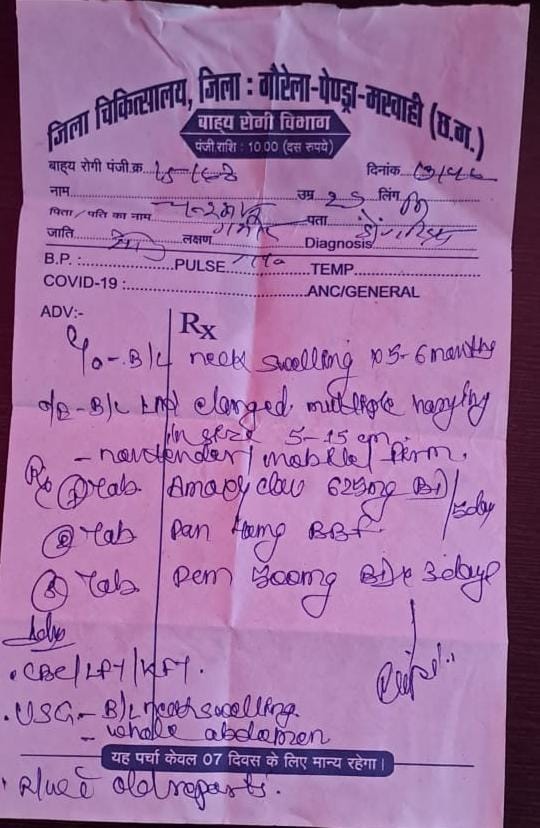 जिला चिकित्सालय, जिला : गौरेला-पेण्ड्रा-मरवाही (छ.ग.)
बाह्य रोगी विभाग
पंजी.राशि : 10.00 (दस रूपये)
बाह्य रोगी पंजी.क्र. दिनांक
नाम उम्र 25 लिंग
पिता/पति का नाम पता
जाति लक्षण Diagnosis
B.P. : PULSE TEMP.
COVID-19 : ANC/GENERAL
ADV:- Rx
c/o - B/L neck swelling x 5-6 months
o/E - B/L LND enlarged. multiple
in size 5-15 cm
- nontender / mobile / firm.
Rx ① Tab Amoxyclav 625mg BD / 5day
② Tab Pan 40mg BBF
③ Tab 300mg BD x 3 days
Adv
• CBC/LFT/KFT.
• USG - B/L neck swelling
- whole abdomen
यह पर्चा केवल 07 दिवस के लिए मान्य रहेगा।
• old reports.